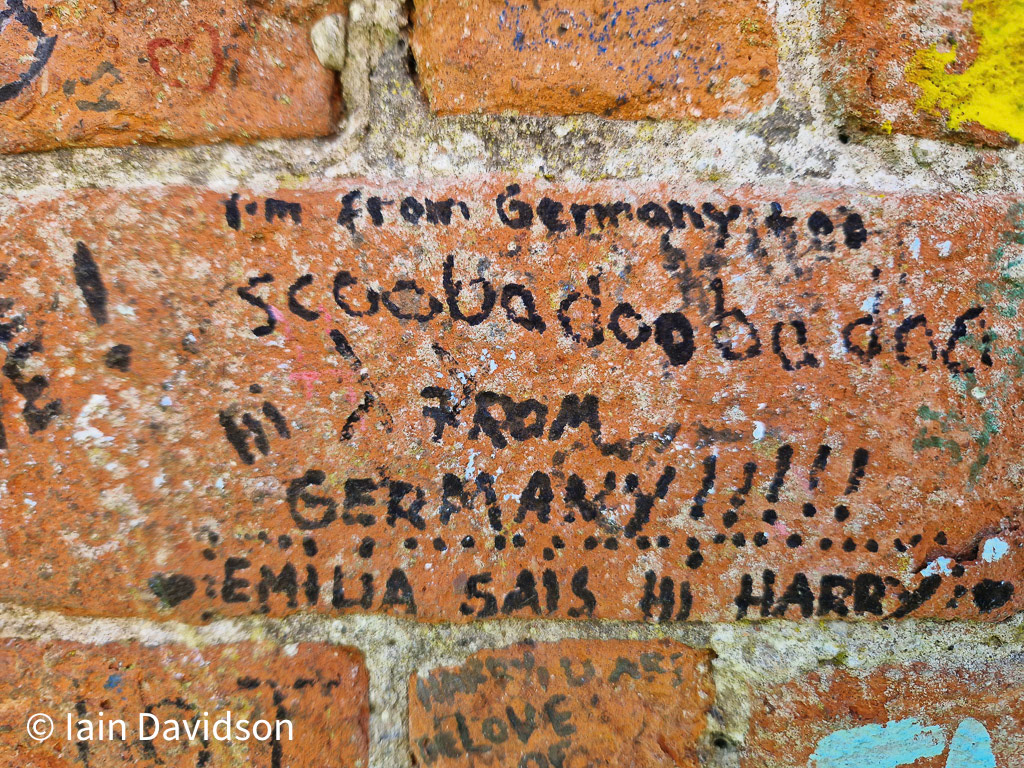 I'm from Germany too
scoobadoobadoo
Hi
FROM
GERMANY!!!!!
EMILIA SAIS HI HARRY
HARRY U ARE
LOVE
© Iain Davidson